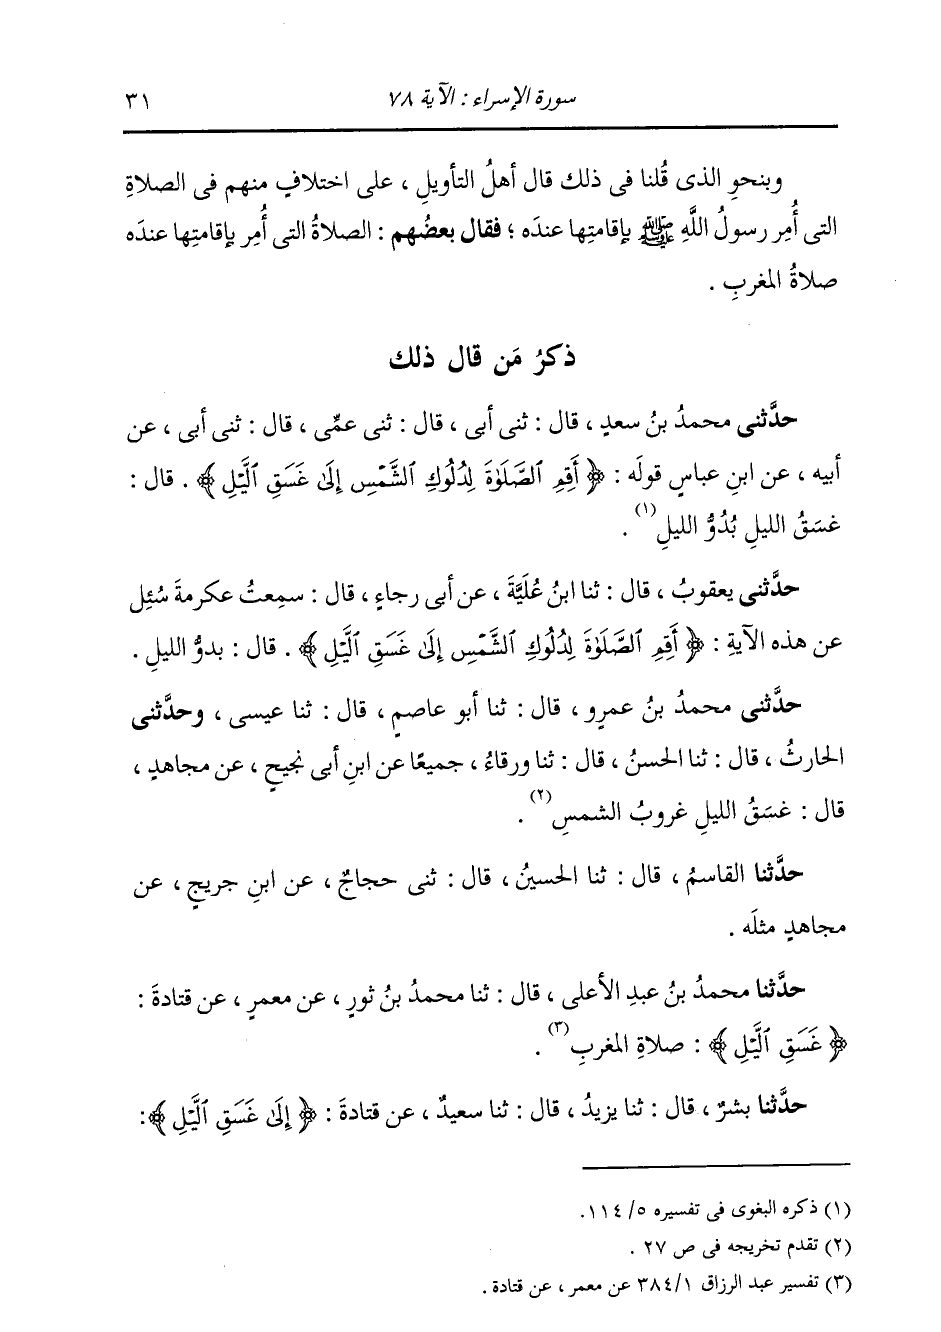 سورة الإسراء : الآية ٧٨
٣١
وبنحوِ الذى قُلنا فى ذلك قال أهلُ التأويلِ ، على اختلافٍ منهم فى الصلاةِ
التى أُمِر رسولُ اللَّهِ ﷺ بإقامتِها عندَه ؛ فقال بعضُهم : الصلاةُ التى أُمِر بإقامتِها عندَه
صلاةُ المغربِ .
ذكرُ مَن قال ذلك
حدَّثنى محمدُ بنُ سعدٍ ، قال : ثنى أبى ، قال : ثنى عمِّى ، قال : ثنى أبى ، عن
أبيه ، عن ابنِ عباسٍ قولَه : ﴿ أَقِمِ ٱلصَّلَوٰةَ لِدُلُوكِ ٱلشَّمْسِ إِلَىٰ غَسَقِ ٱلَّيْلِ ﴾ . قال :
غسَقُ الليلِ بُدُوُّ الليلِ(١) .
حدَّثنى يعقوبُ ، قال : ثنا ابنُ عُلَيَّةَ ، عن أبى رجاءٍ ، قال : سمِعتُ عكرمةَ سُئِل
عن هذه الآيةِ : ﴿ أَقِمِ ٱلصَّلَوٰةَ لِدُلُوكِ ٱلشَّمْسِ إِلَىٰ غَسَقِ ٱلَّيْلِ ﴾ . قال : بدوُّ الليلِ .
حدَّثنى محمدُ بنُ عمرٍو ، قال : ثنا أبو عاصمٍ ، قال : ثنا عيسى ، وحدَّثنى
الحارثُ ، قال : ثنا الحسنُ ، قال : ثنا ورقاءُ ، جميعًا عن ابنِ أبى نجيحٍ ، عن مجاهدٍ ،
قال : غسَقُ الليلِ غروبُ الشمسِ(٢) .
حدَّثنا القاسمُ ، قال : ثنا الحسينُ ، قال : ثنى حجاجٌ ، عن ابنِ جريجٍ ، عن
مجاهدٍ مثلَه .
حدَّثنا محمدُ بنُ عبدِ الأعلى ، قال : ثنا محمدُ بنُ ثورٍ ، عن معمرٍ ، عن قتادةَ :
﴿ غَسَقِ ٱلَّيْلِ ﴾ : صلاةِ المغربِ(٣) .
حدَّثنا بشرٌ ، قال : ثنا يزيدُ ، قال : ثنا سعيدٌ ، عن قتادةَ : ﴿ إِلَىٰ غَسَقِ ٱلَّيْلِ ﴾:
(١) ذكره البغوى فى تفسيره ٥/ ١١٤.
(٢) تقدم تخريجه فى ص ٢٧ .
(٣) تفسير عبد الرزاق ٣٨٤/١ عن معمر ، عن قتادة .